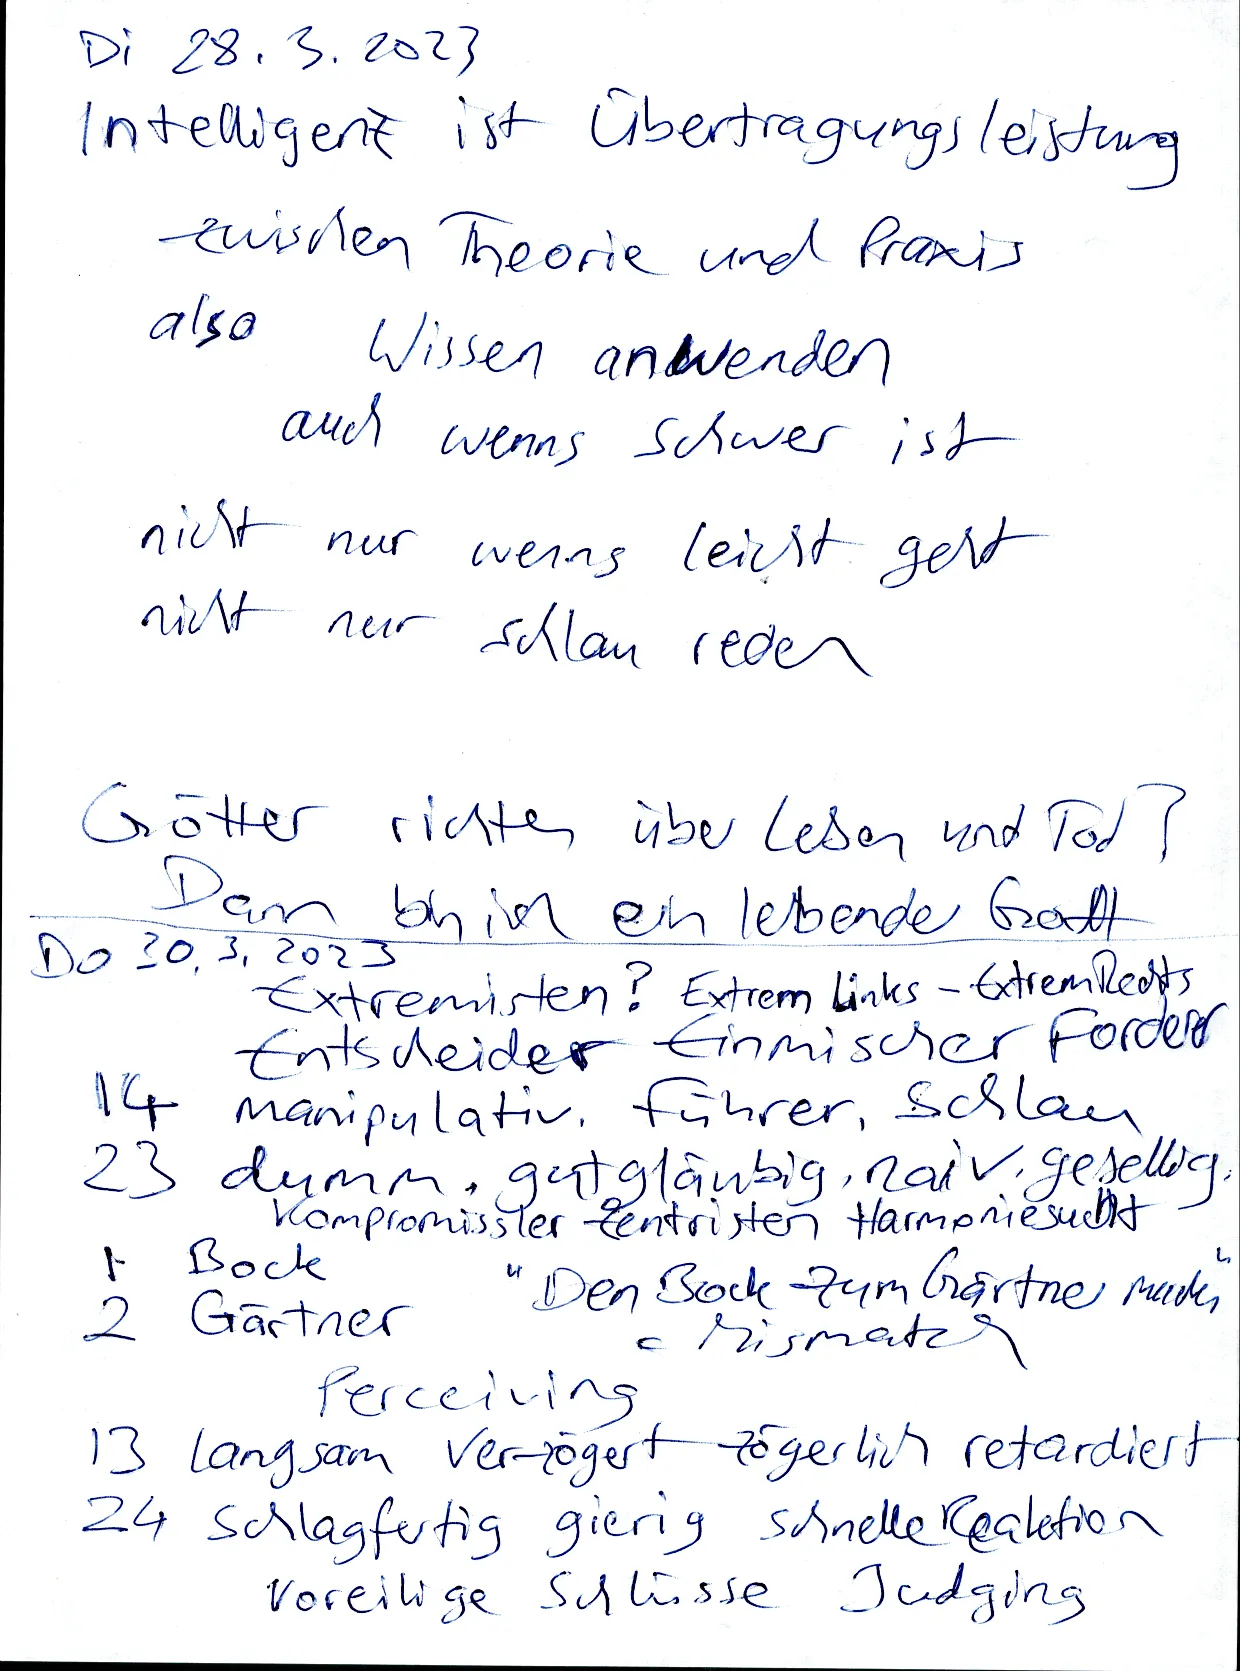 Di 28.3.2023
Intelligenz ist Übertragungsleistung
zwischen Theorie und Praxis
also Wissen anwenden
auch wenns schwer ist
nicht nur wenns leicht geht
nicht nur schlau reden
Götter richten über Leben und Tod?
Dann bin ich ein lebender Gott
Do 30.3.2023
Extremisten? Extrem Links - Extrem Rechts
Entscheider Einmischer Forderer
14 manipulativ, Führer, Schlau
23 dumm, gutgläubig, naiv, gesellig,
Kompromissler Zentristen Harmoniesucht
1 Bock
"Den Bock zum Gärtner machen"
2 Gärtner
= Mismatch
Perceiving
13 langsam verzögert zögerlich retardiert
24 schlagfertig gierig schnelle Reaktion
voreilige Schlüsse Judging